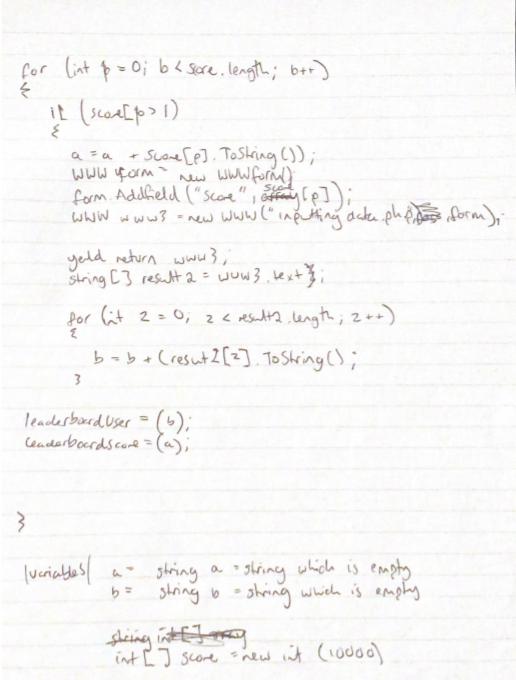 for (int p = 0; b < score.length; b++)
{
if (score[p > 1)
{
a = a + score[p].ToString());
WWW form = new WWWform()
form.Addfield ("score", score[p]);
WWW www3 = new WWW("inputting data.php", form);
yeild return www3;
string[] result2 = www3.text };
for (int z = 0; z < result2.length; z++)
{
b = b + (result2[z].ToString();
}
leaderboardUser = (b);
leaderboardscore = (a);
}
|variables| a = string a = string which is empty
b = string b = string which is empty
string int[] array
int[] score = new int (10000)